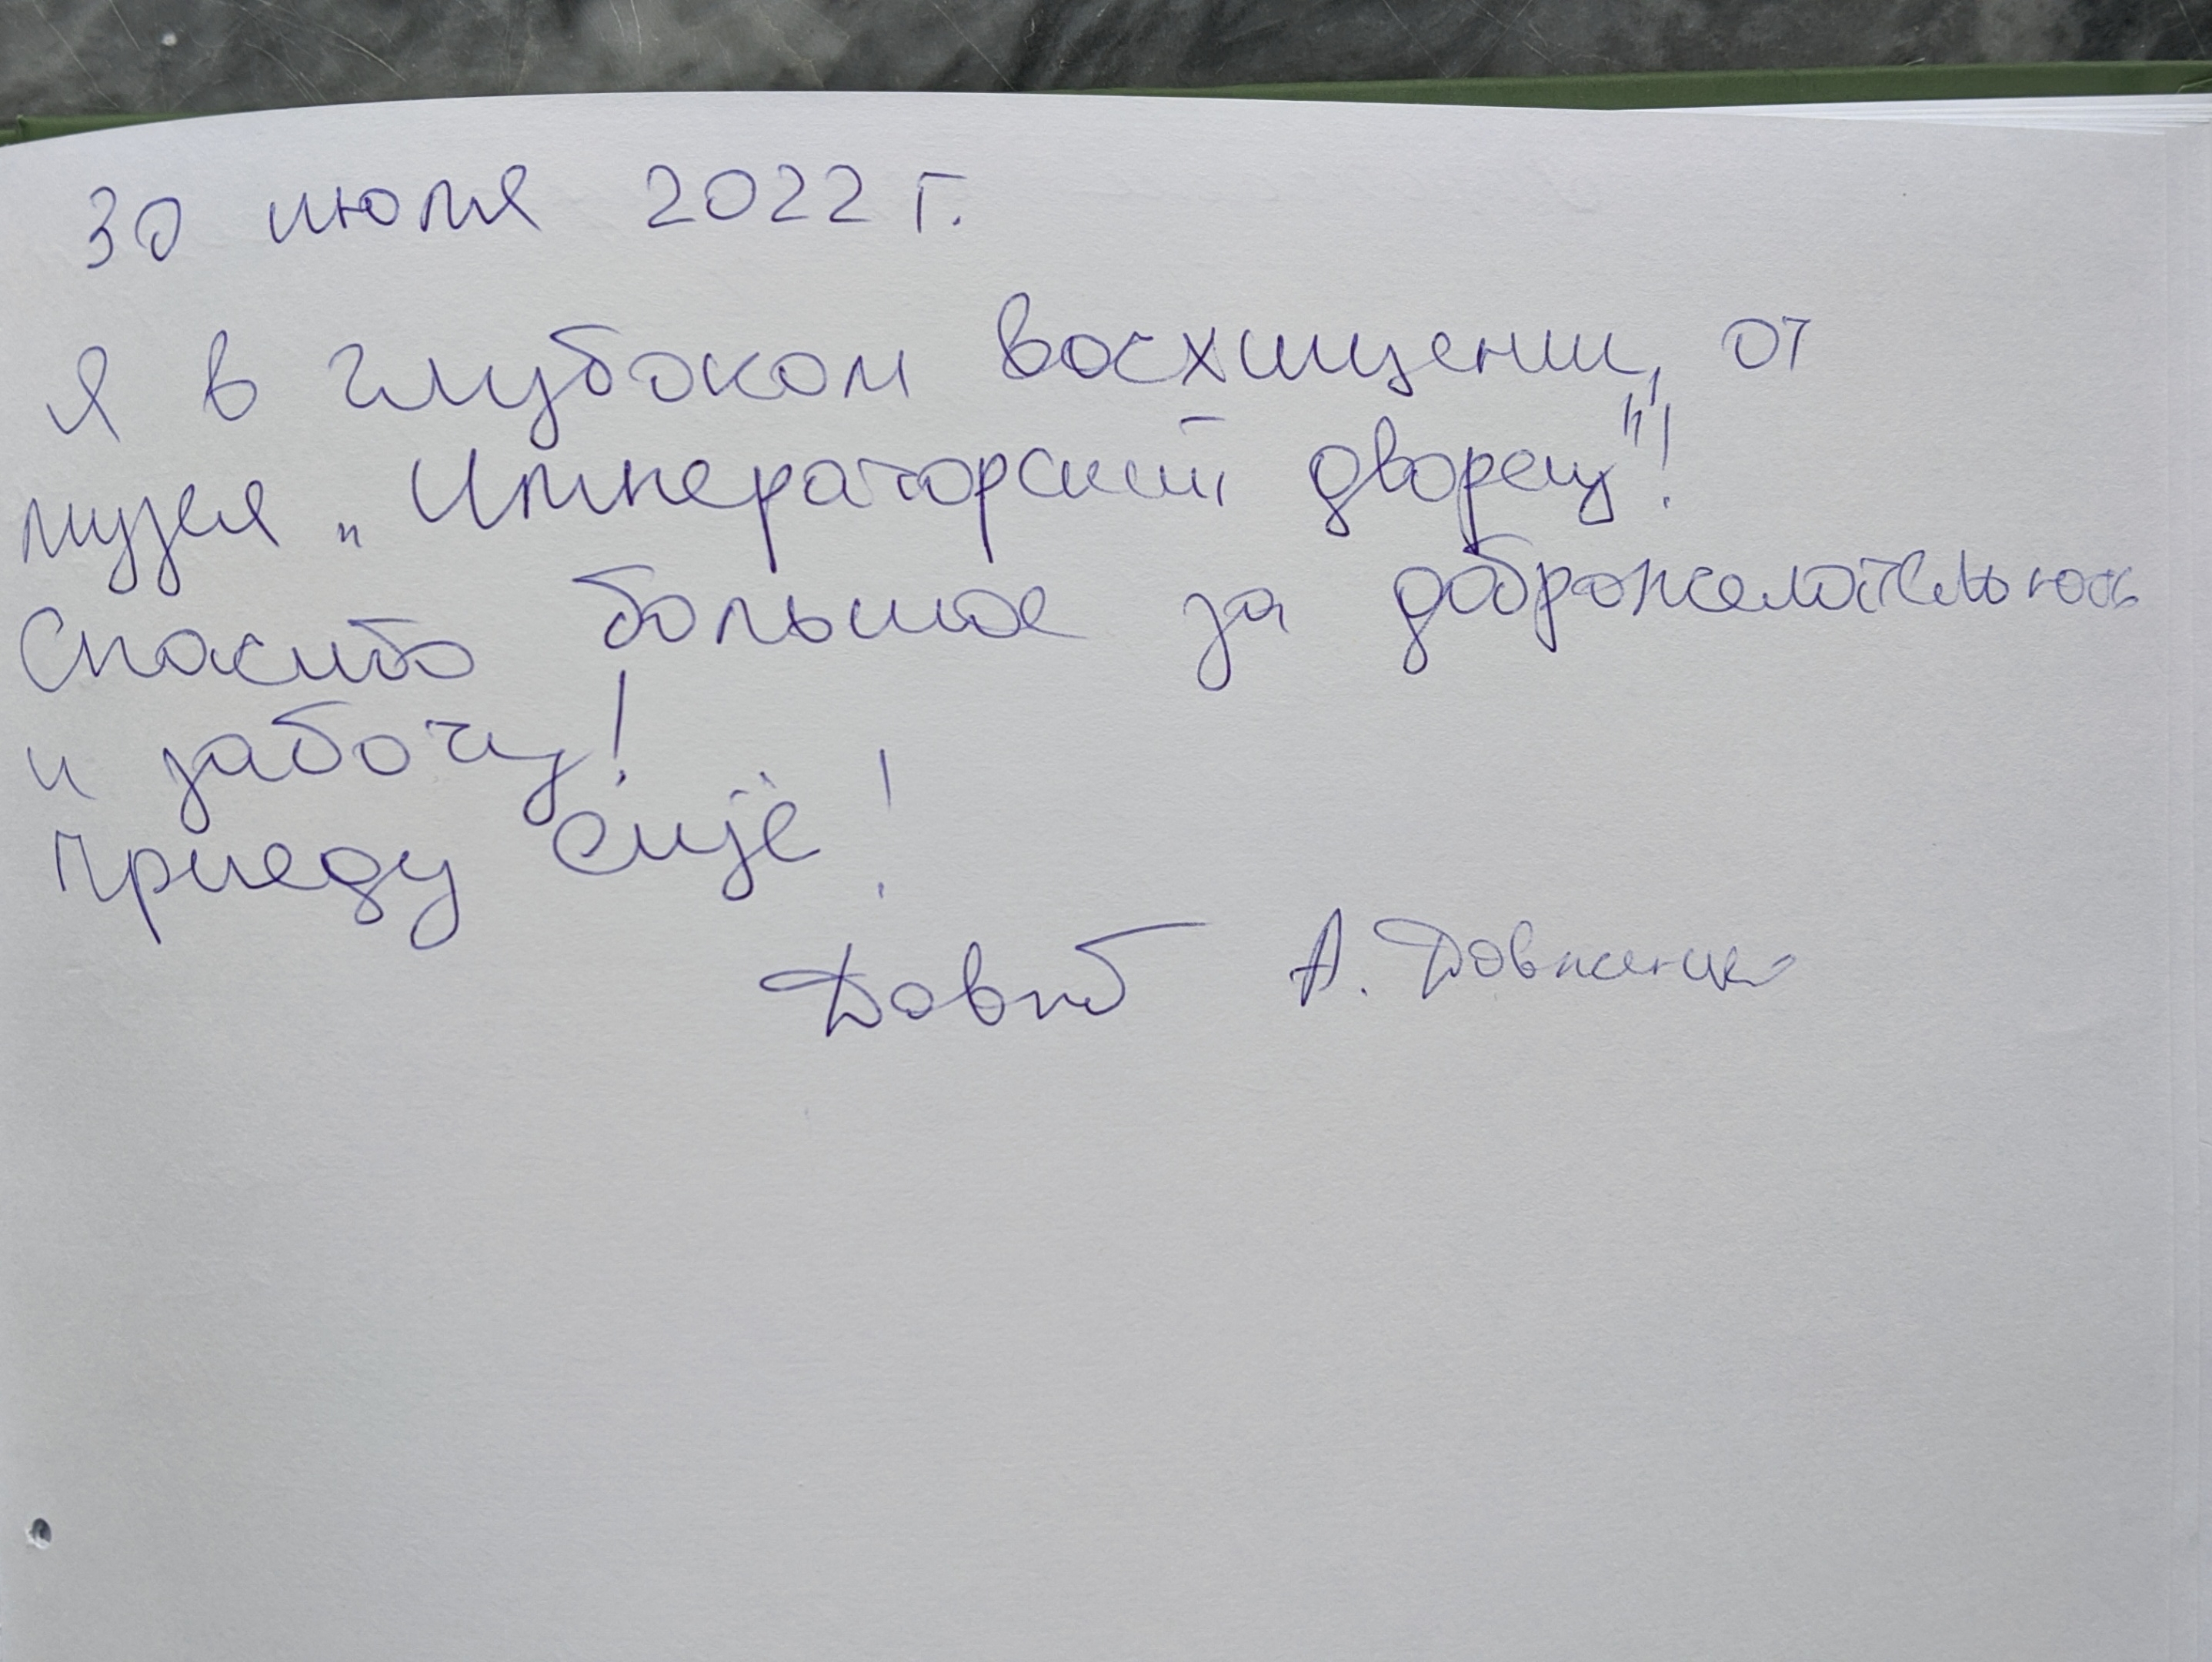 30 июля 2022 г.
Я в глубоком восхищении, от
музея „Императорский дворец"!
Спасибо большое за доброжелательность
и заботу!
Приеду ещё!
А. Довженко